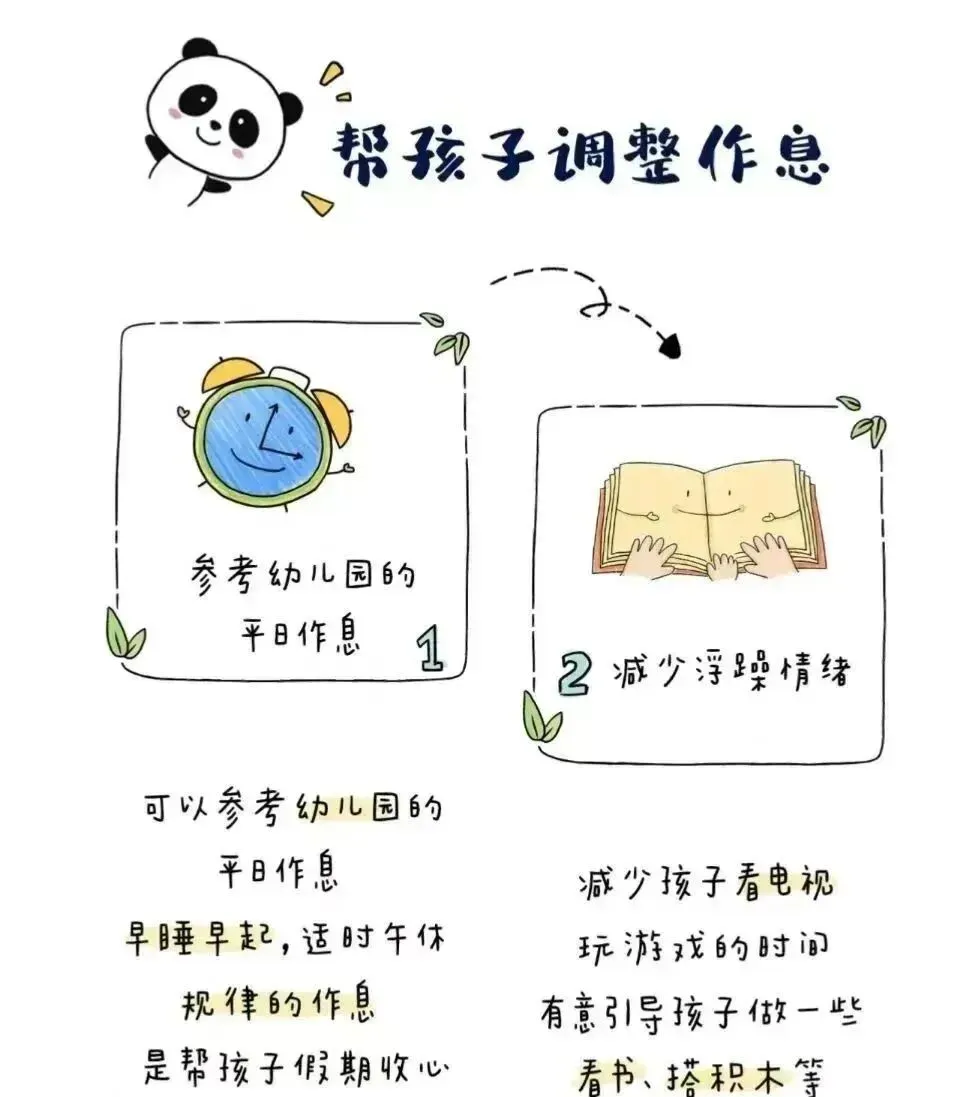 帮孩子调整作息
参考幼儿园的
平日作息
1
2 减少浮躁情绪
可以参考幼儿园的
平日作息
早睡早起,适时午休
规律的作息
是帮孩子假期收心
减少孩子看电视
玩游戏的时间
有意引导孩子做一些
看书、搭积木等